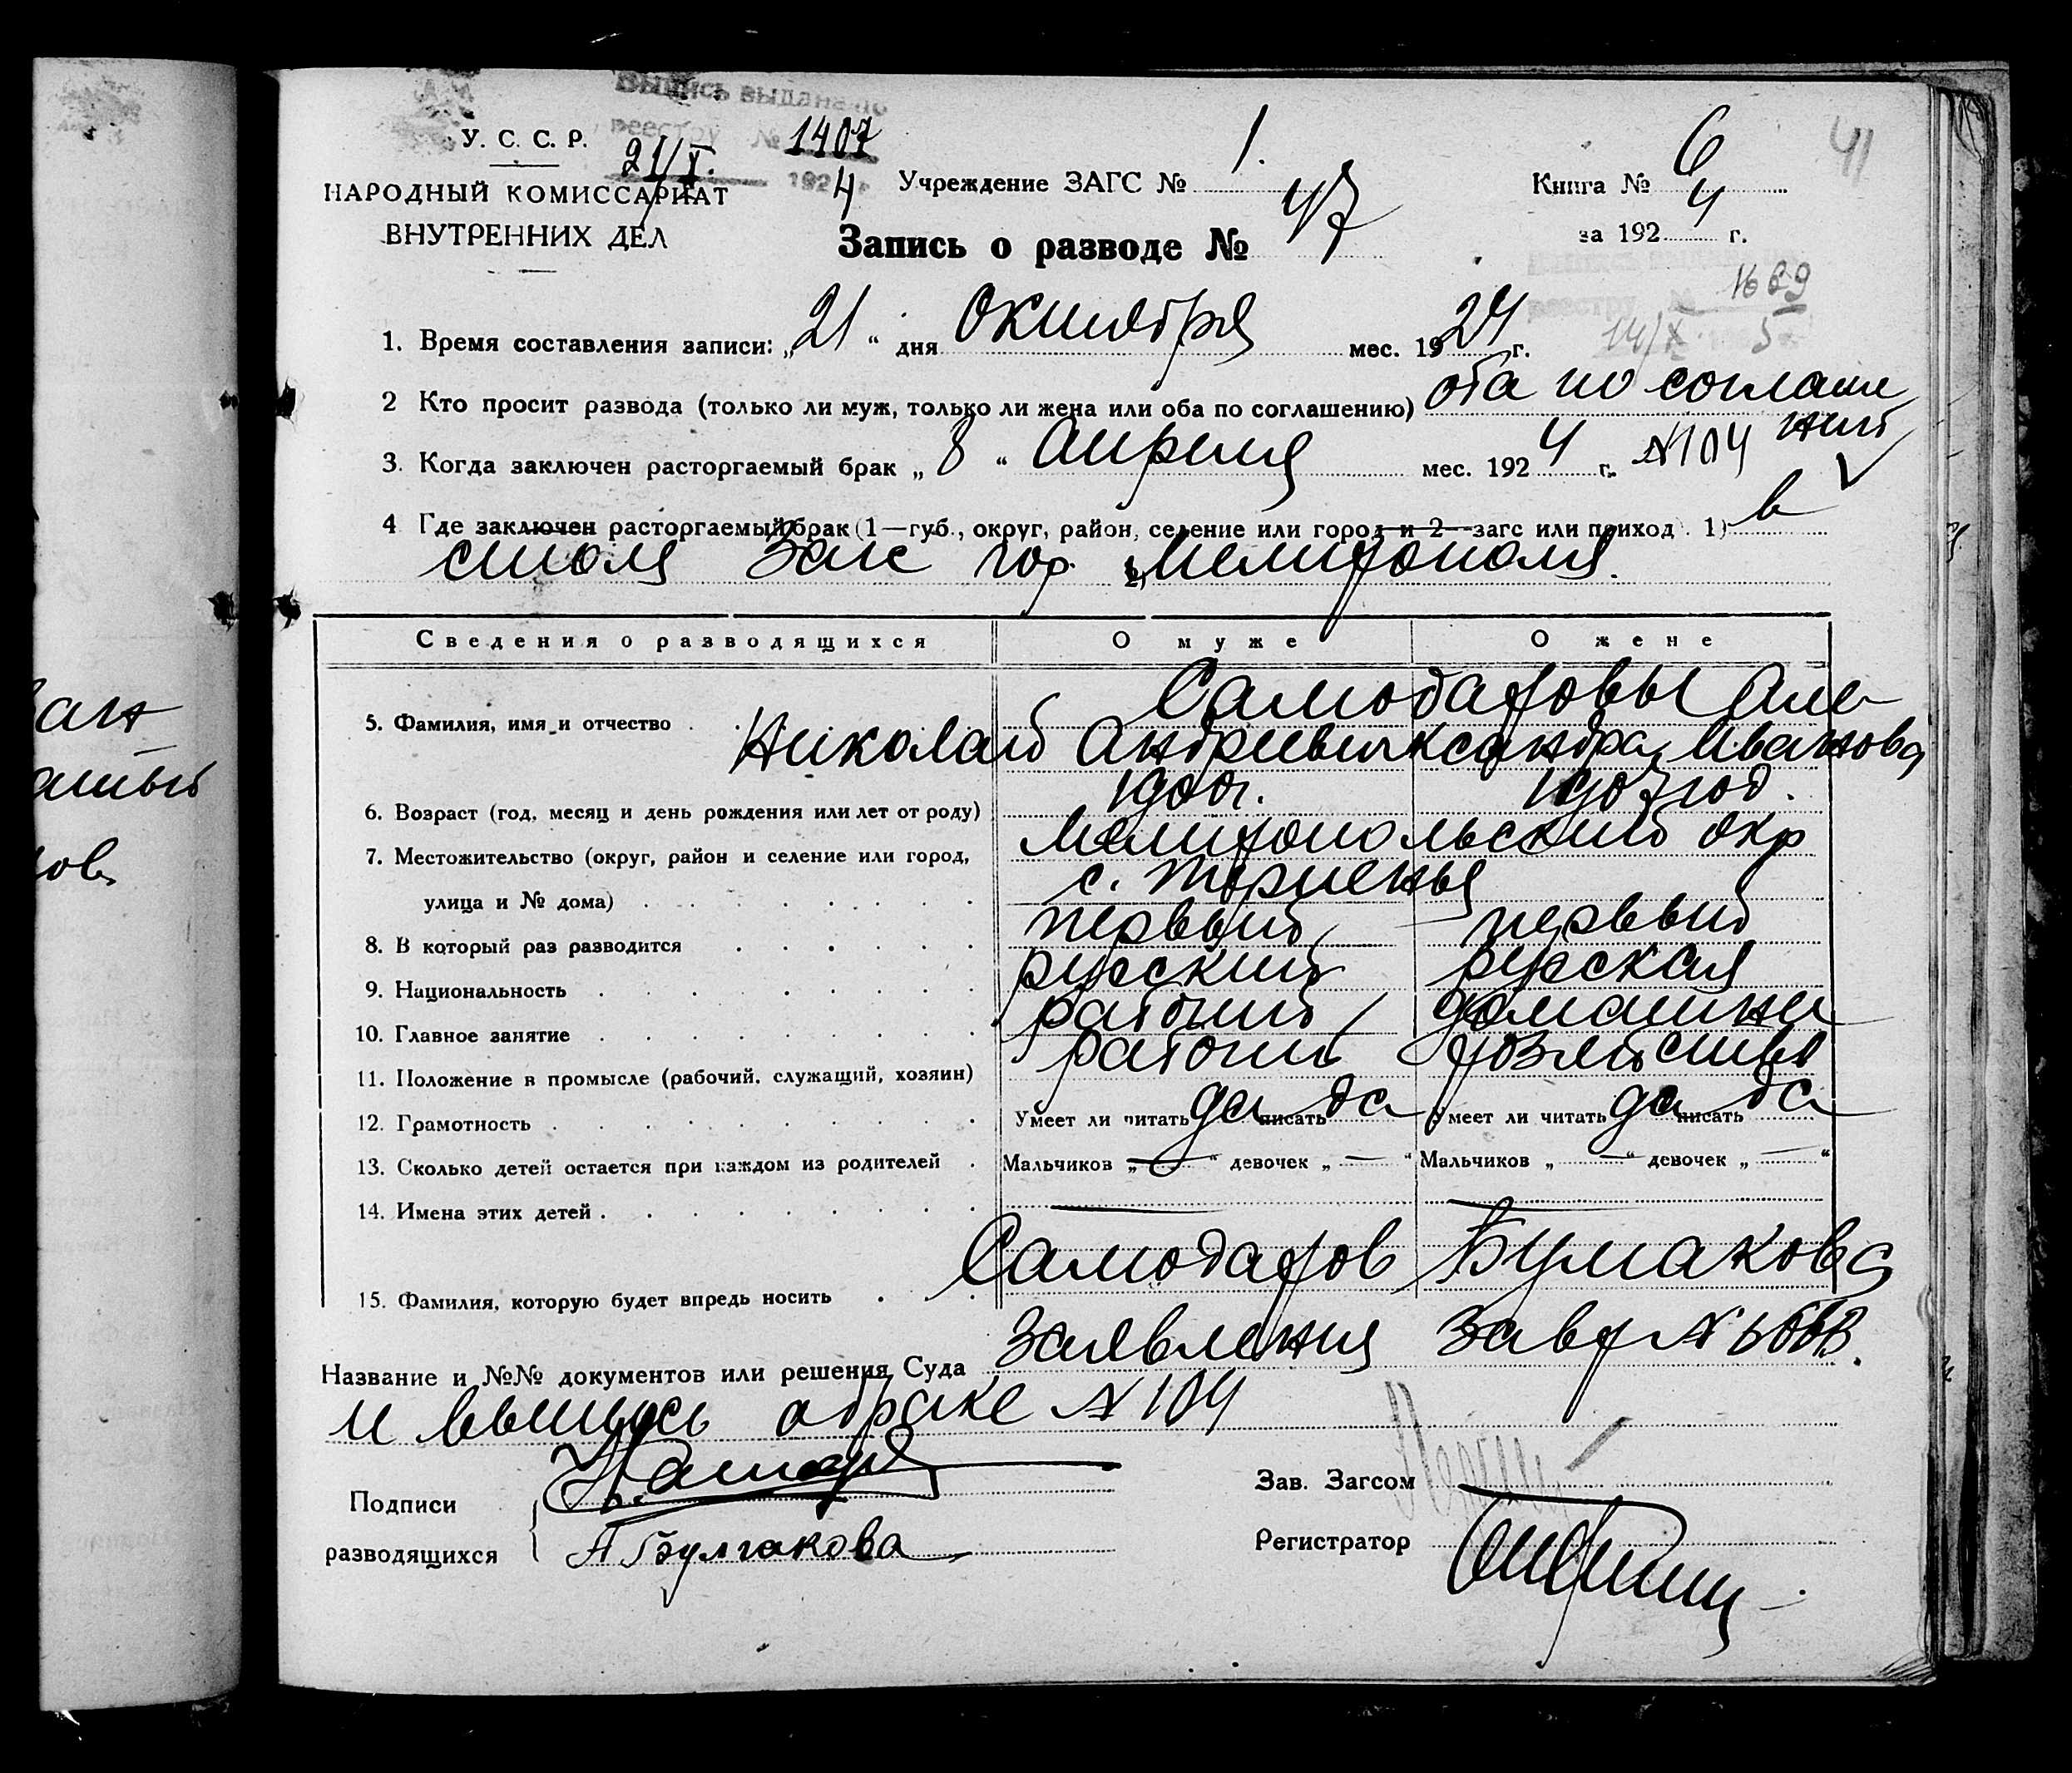 Выпись выдана по
реестру № 1407
21/X. 1924 г.
У. С. С. Р.
НАРОДНЫЙ КОМИССАРИАТ
ВНУТРЕННИХ ДЕЛ
Учреждение ЗАГС № 1.
Книга № 6
за 1924 г.
41
Запись о разводе № 47
реестру № 1669
14/X 5
1. Время составления записи: „21“ дня Октября мес. 1924 г.
2 Кто просит развода (только ли муж, только ли жена или оба по соглашению) оба по соглаше
ний
3. Когда заключен расторгаемый брак „8“ Апреля мес. 1924 г. №104
4 Где заключен расторгаемый брак (1—губ., округ, район, селение или город и 2—загс или приход). 1) в
столе Загс гор. 2) Мелитополя.
Сведения о разводящихся О муже О жене
5. Фамилия, имя и отчество Самодаровы Але
Николай Андреевич ксандра Иванова
6. Возраст (год, месяц и день рождения или лет от роду) 1900г. 1907 год.
7. Местожительство (округ, район и селение или город, Мелитопольский окр
улица и № дома) с. Терпенья
8. В который раз разводится первый первый
9. Национальность русский русская
10. Главное занятие рабочий домашне
11. Положение в промысле (рабочий, служащий, хозяин) рабочий хозяйство
12. Грамотность Умеет ли читать да писать да Умеет ли читать да писать да
13. Сколько детей остается при каждом из родителей Мальчиков „—“ девочек „—“ Мальчиков „—“ девочек „—“
14. Имена этих детей — —
15. Фамилия, которую будет впредь носить Самодаров Булгакова
Название и №№ документов или решения Суда Заявления
и выпись о браке № 104
Подписи
разводящихся
А Булгакова
Зав. Загсом
Регистратор
ан
ов